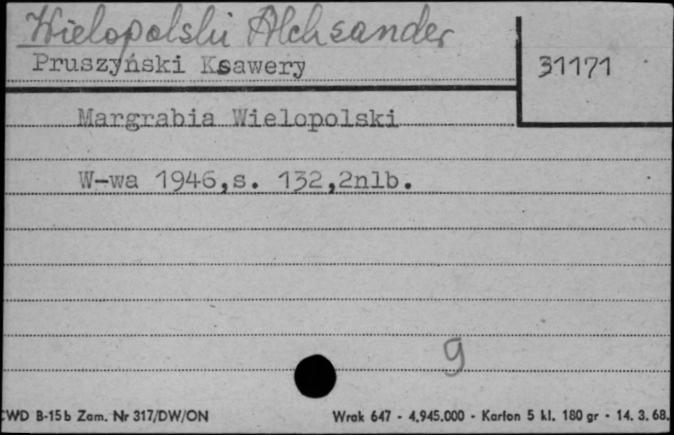 Wielopolski Aleksander
Pruszyński Ksawery
31171
Margrabia Wielopolski
W-wa 1946,s. 132,2nlb.
9
CWD B-15b Zam. Nr 317/DW/ON
Wrak 647 - 4.945.000 - Karton 5 kl. 180 gr - 14. 3. 68.